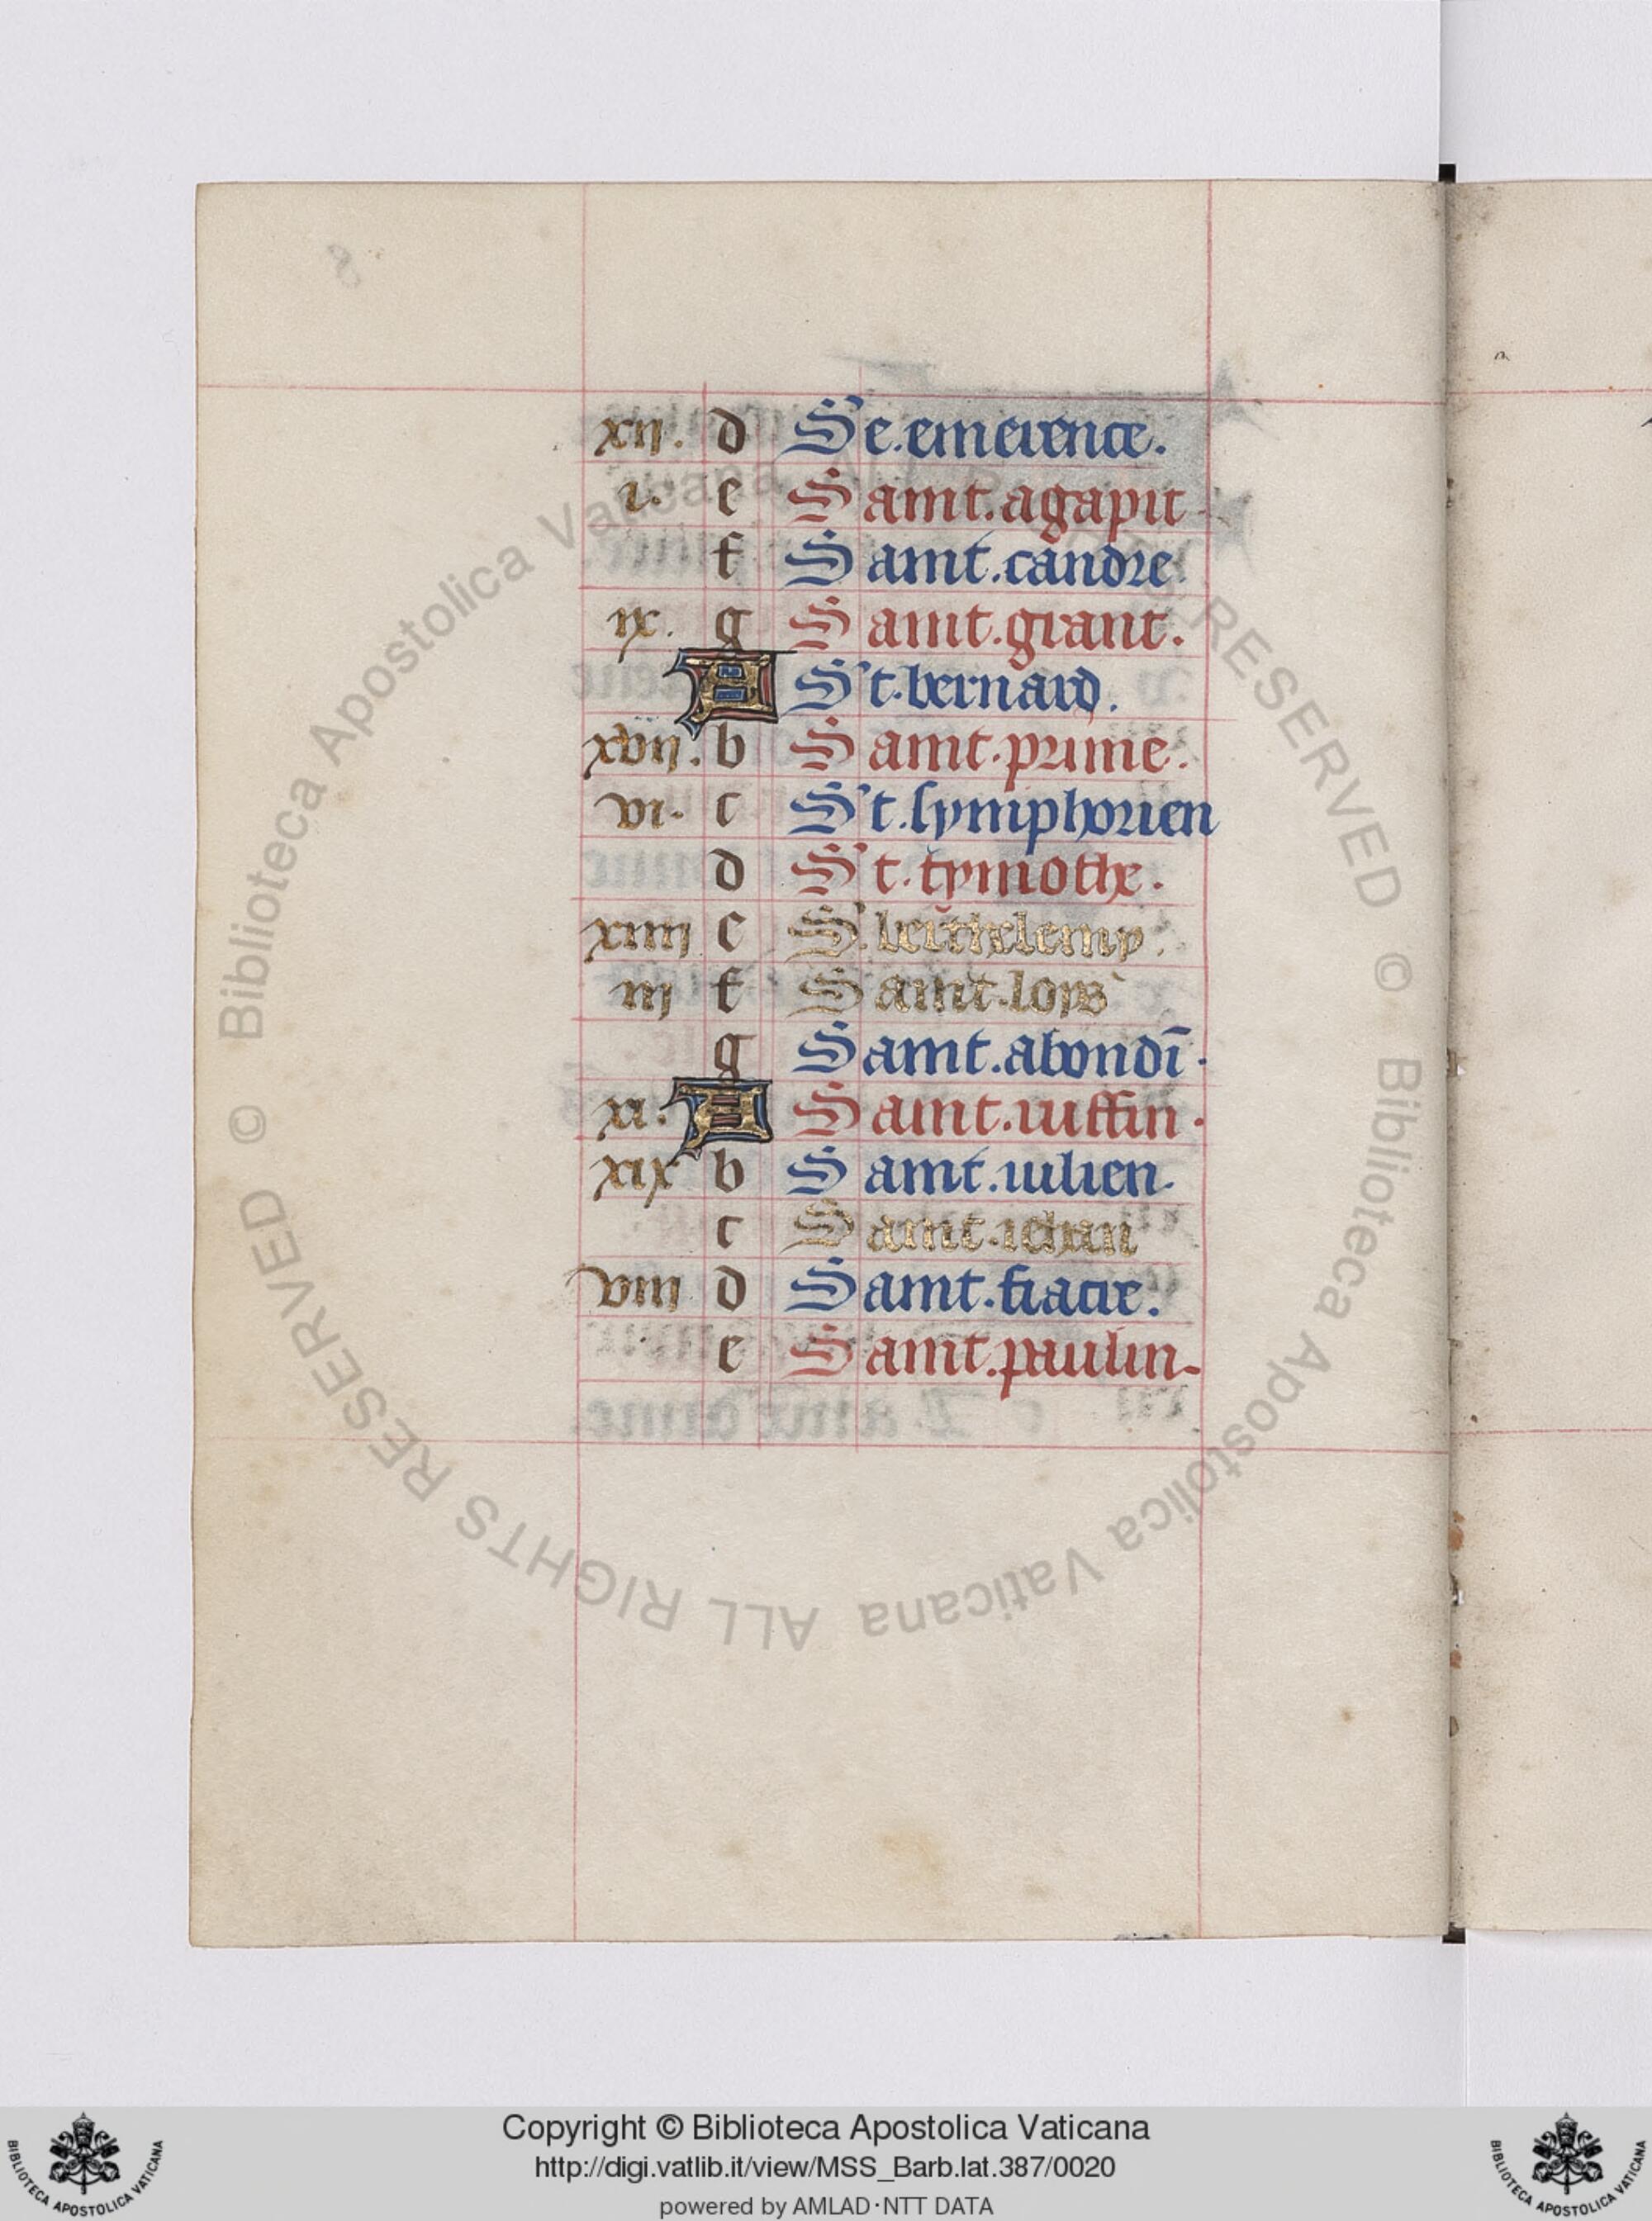 xij. d Se. emerence.
i. e Saint. agapit.
f Saint. candre.
ix. g Saint. giant.
A St. bernard.
xvij. b Saint. prime.
vi. c St. symphorien
d St. tymothe.
xiiij e S. berthelemy.
iij f Saint. loys
g Saint. abondī.
xi. A Saint. ruffin.
xix b Saint. iulien.
c Saint. iehan
viij d Saint. fiacre.
e Saint. paulin.
© Biblioteca Apostolica Vaticana ALL RIGHTS RESERVED
© Biblioteca Apostolica Vaticana ALL RIGHTS RESERVED
Copyright © Biblioteca Apostolica Vaticana
http://digi.vatlib.it/view/MSS_Barb.lat.387/0020
powered by AMLAD･NTT DATA
BIBLIOTECA APOSTOLICA VATICANA
BIBLIOTECA APOSTOLICA VATICANA